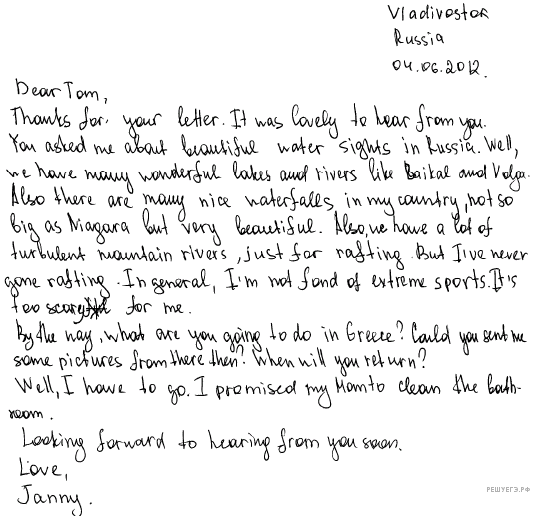 Vladivostok
Russia
04.06.2012.
Dear Tom,
Thanks for your letter. It was lovely to hear from you.
You asked me about beautiful water sights in Russia. Well,
we have many wonderful lakes and rivers like Baikal and Volga.
Also there are many nice waterfalls in my country, not so
big as Niagara but very beautiful. Also, we have a lot of
turbulent mountain rivers, just for rafting. But I've never
gone rafting. In general, I'm not fond of extreme sports. It's
too scary for me.
By the way, what are you going to do in Greece? Could you sent me
some pictures from there then? When will you return?
Well, I have to go. I promised my Mom to clean the bath-
room.
Looking forward to hearing from you soon.
Love,
Janny.
РЕШУЕГЭ.РФ